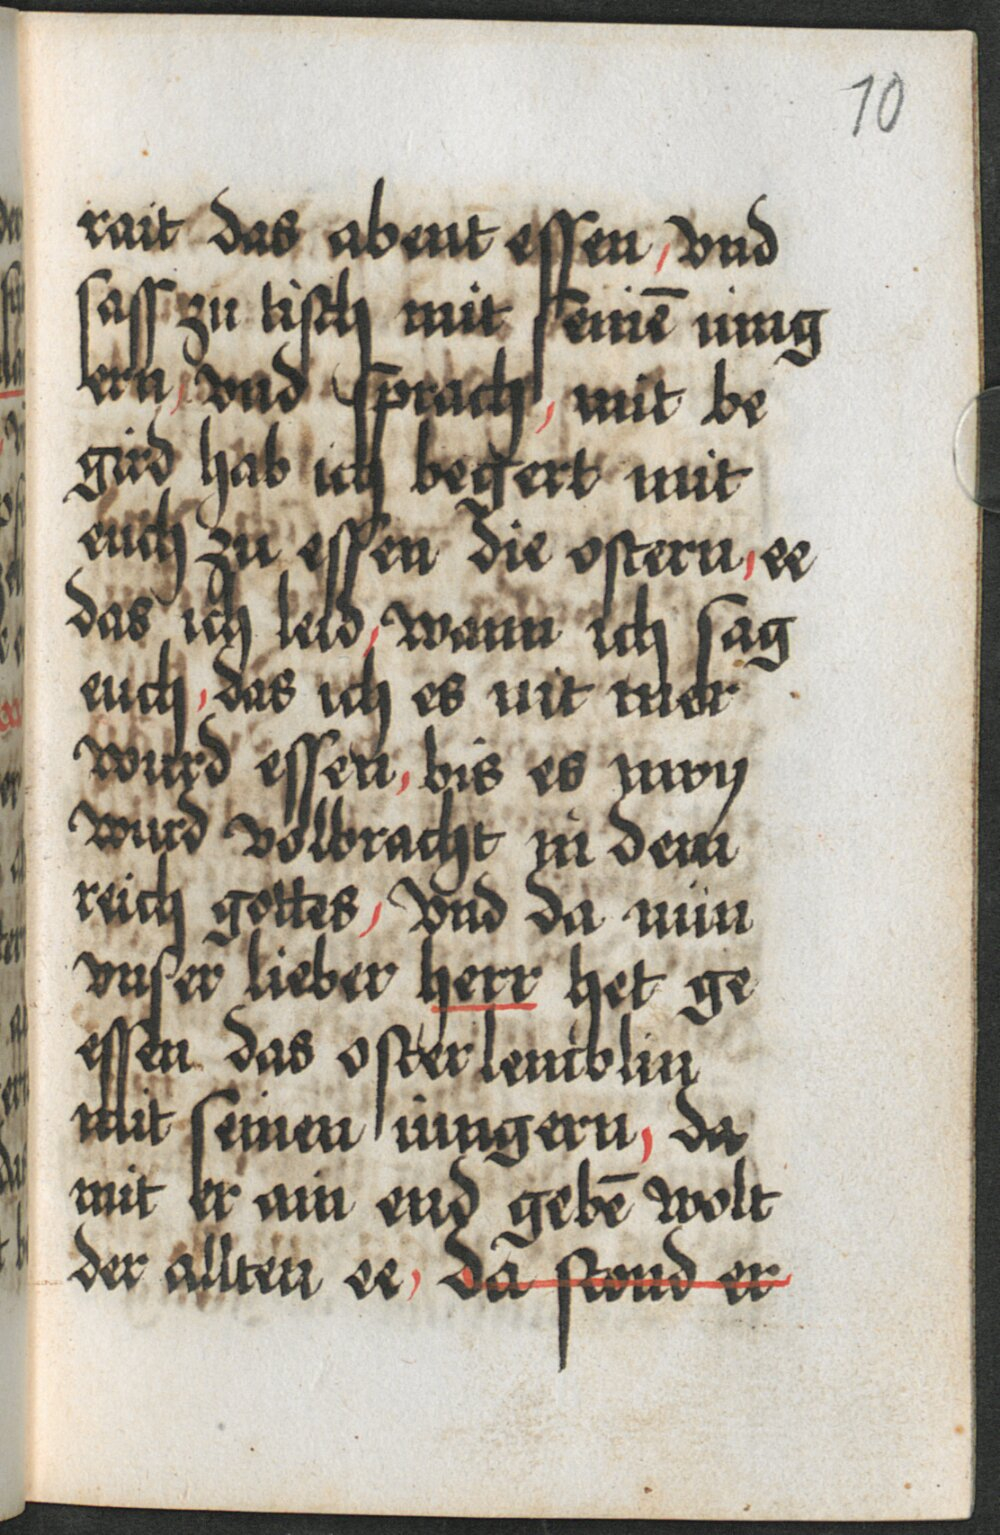 10
rait das abent essen, vnd
sass zu tisch mit seinē iung
ern, vnd sprach, mit be
gird hab ich begert mit
euch zu essen die ostern, ee
das ich leid, wann ich sag
euch, das ich es nit mer
wurd essen, bis es nwn
wurd volbracht in dem
reich gottes, vnd da nün
vnser lieber herr het ge
essen das osterlemblin
mit seinen iungern, da
mit er ain end gebē wolt
der allten ee, da stond er